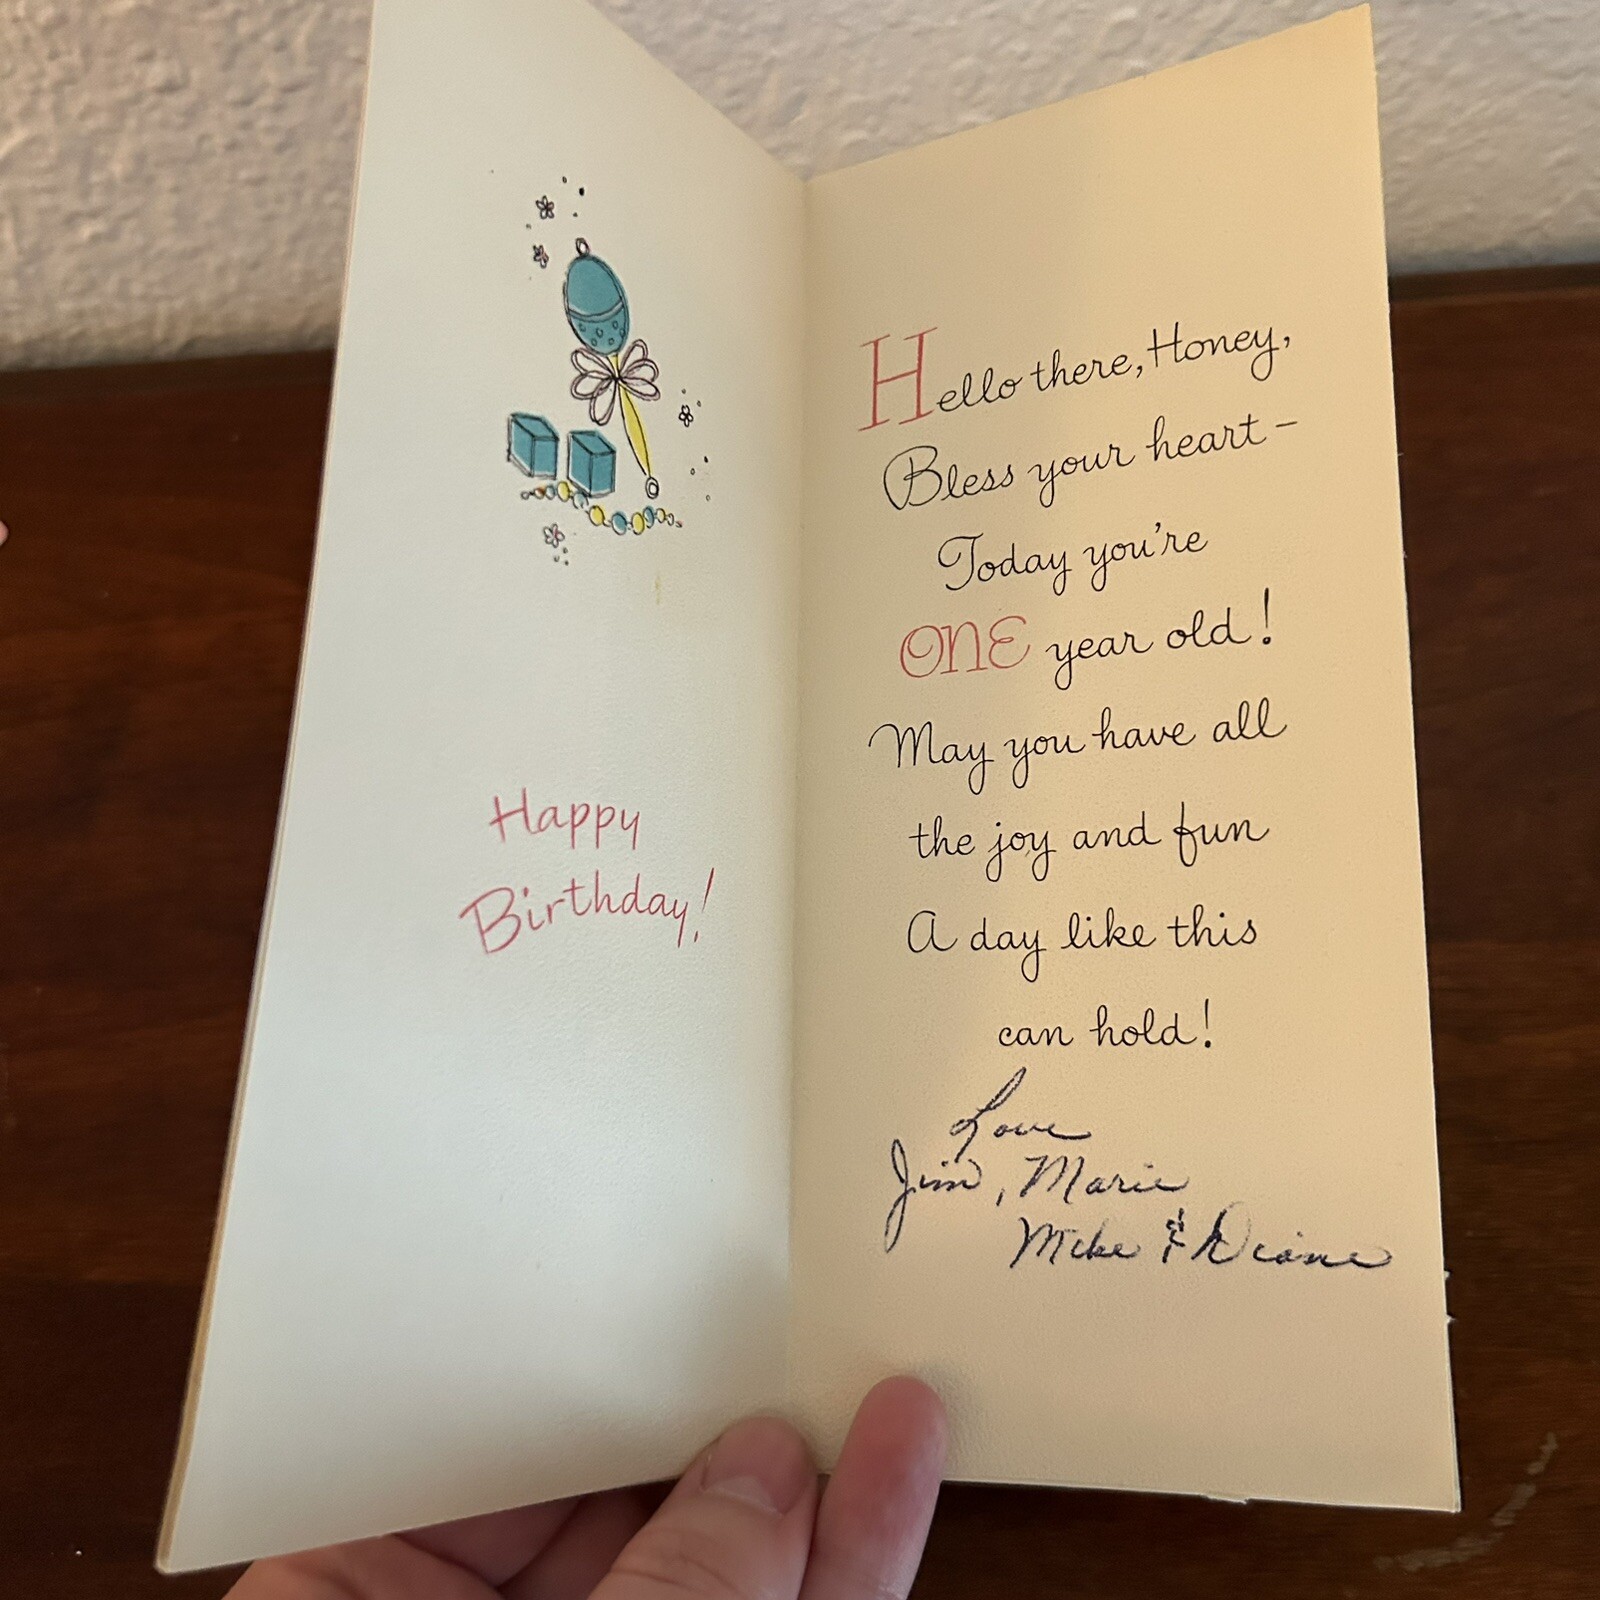 Happy
Birthday!
Hello there, Honey,
Bless your heart –
Today you're
ONE year old!
May you have all
the joy and fun
A day like this
can hold!
Love
Jim, Marie
Mike & Diane